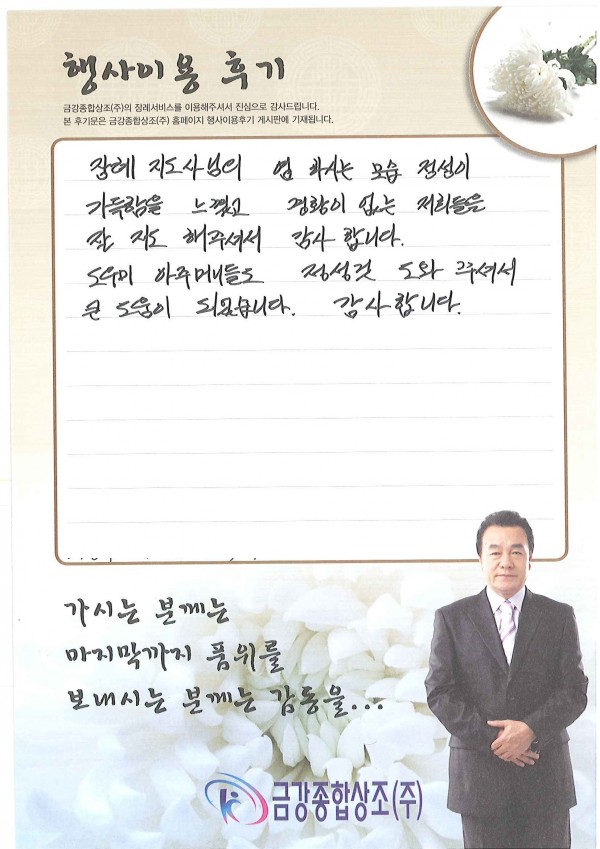 행사이용 후기
금강종합상조(주)의 장례서비스를 이용해주셔서 진심으로 감사드립니다.
본 후기문은 금강종합상조(주) 홈페이지 행사이용후기 게시판에 기재됩니다.
장례 지도사님의 염 하시는 모습 정성이
가득함을 느꼈고 경황이 없는 저희들을
잘 지도 해주셔서 감사 합니다.
도우미 아주머니들도 정성껏 도와 주셔서
큰 도움이 되었습니다. 감사합니다.
가시는 분께는
마지막까지 품위를
보내시는 분께는 감동을...
금강종합상조(주)